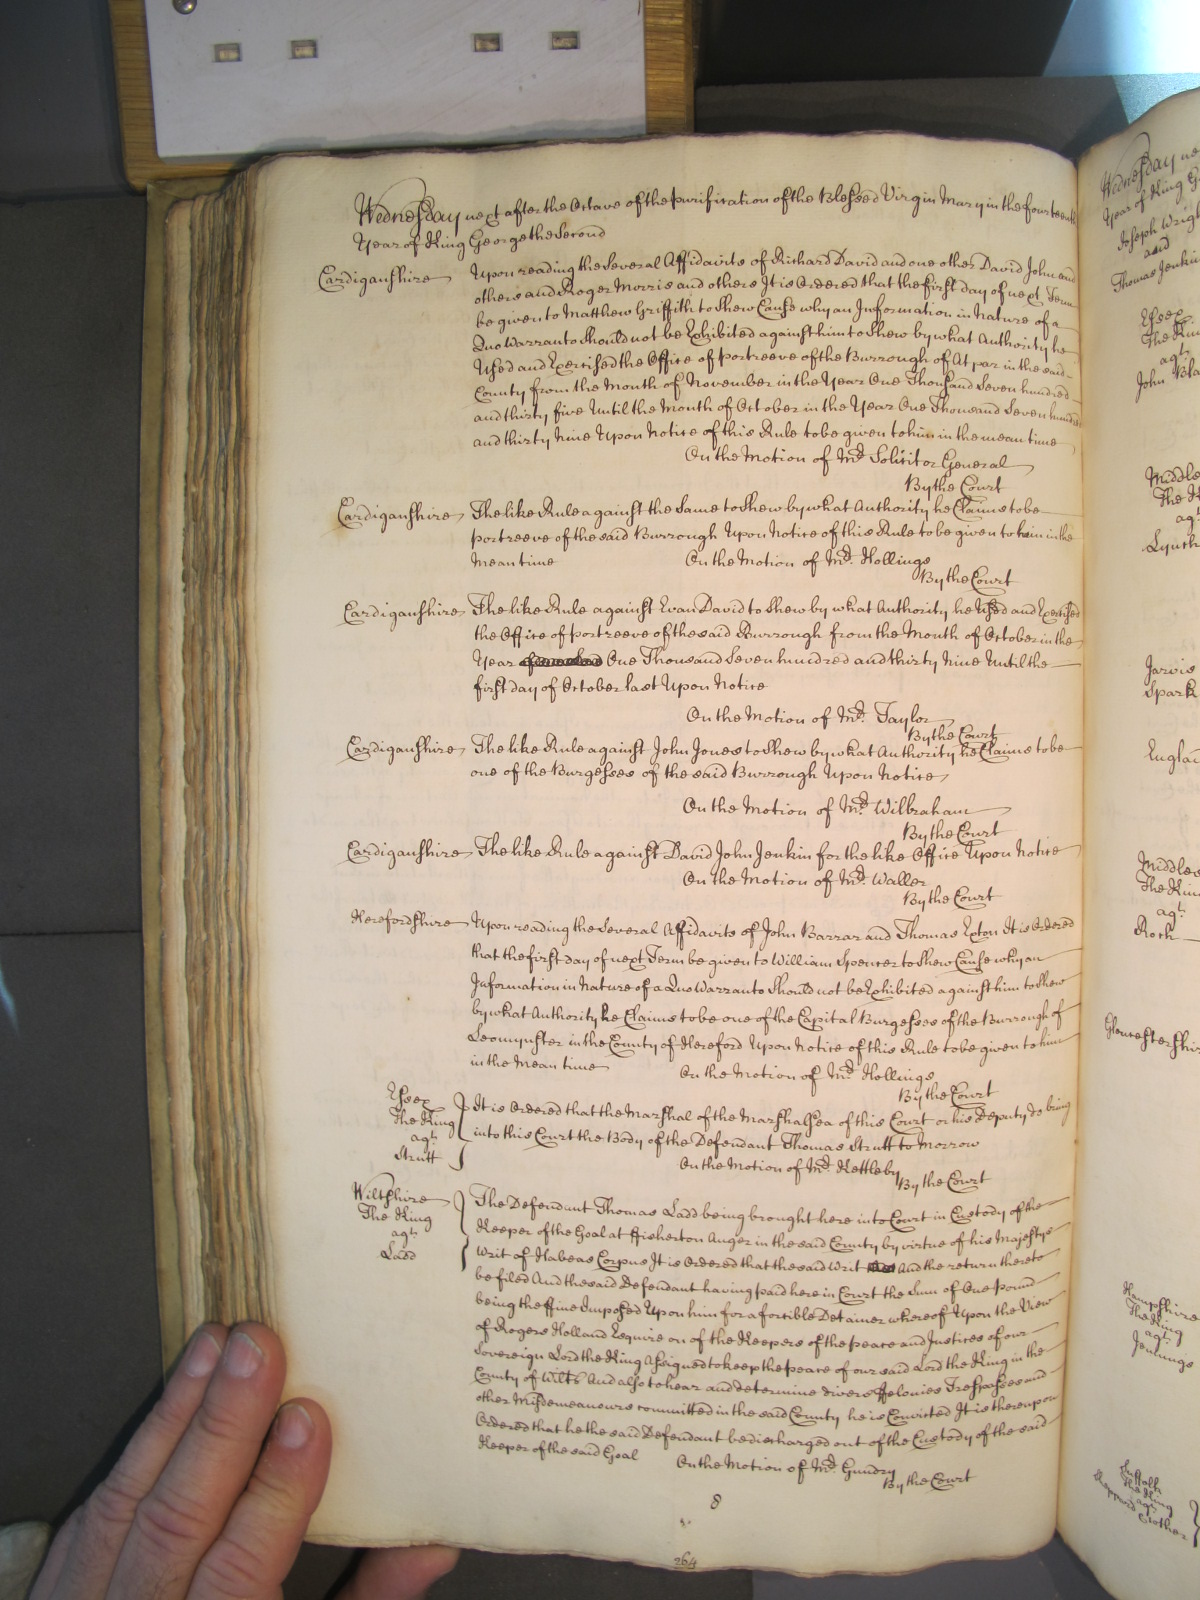 Wednesday next after the Octave of the purification of the Blessed Virgin Mary in the fourteenth
Year of King George the Second
Cardiganshire Upon reading the Several Affidavits of Richard David and one other David John and
others and Roger Morris and others It is Ordered that the first day of next Term
be given to Matthew Griffith to Shew Cause why an Information in Nature of a
Quo Warranto Should not be Exhibited against him to Shew by what Authority he
Used and Exercised the Office of portreeve of the Burrough of Atpar in the said
County from the Month of November in the Year One Thousand Seven hundred
and thirty five Until the Month of October in the Year One Thousand Seven hundred
and thirty Nine Upon Notice of this Rule to be given to him in the mean time
On the Motion of Mr. Solicitor General
By the Court
Cardiganshire The like Rule against the Same to Shew by what Authority he Claims to be
portreeve of the said Burrough Upon Notice of this Rule to be given to him in the
Mean time On the Motion of Mr. Hollings
By the Court
Cardiganshire The like Rule against Evan David to Shew by what Authority he Used and Exercised
the Office of portreeve of the said Burrough from the Month of October in the
Year One Thousand Seven hundred and thirty Nine Until the
first day of October last Upon Notice
On the Motion of Mr. Taylor
By the Court
Cardiganshire The like Rule against John Jones to Shew by what Authority he Claims to be
one of the Burgesses of the said Burrough Upon Notice
On the Motion of Mr. Wilbraham
By the Court
Cardiganshire The like Rule against David John Jenkin for the like Office Upon Notice
On the Motion of Mr. Waller
By the Court
Herefordshire Upon reading the Several Affidavits of John Barrar and Thomas Exton It is Ordered
that the first day of next Term be given to William Spencer to Shew Cause why an
Information in Nature of a Quo Warranto Should not be Exhibited against him to Shew
by what Authority he Claims to be one of the Capital Burgesses of the Burrough of
Leomynster in the County of Hereford Upon Notice of this Rule to be given to him
in the Mean time On the Motion of Mr. Hollings
By the Court
Essex
The King
agt.
Strutt
It is Ordered that the Marshal of the Marshalsea of this Court or his Deputy do bring
into this Court the Body of the Defendant Thomas Strutt to Morrow
On the Motion of Mr. Kettleby
By the Court
Wiltshire
The King
agt.
Ladd
The Defendant Thomas Ladd being brought here into Court in Custody of the
Keeper of the Goal at ffisherton Anger in the said County by virtue of his Majestys
Writ of Habeas Corpus It is Ordered that the said Writ And the return thereto
be filed And the said Defendant having paid here in Court the Sum of One pound
being the ffine Imposed Upon him for a forcible Detainer whereof Upon the View
of Rogers Holland Esquire on of the Keepers of the peace and Justices of our
Sovereign Lord the King Assigned to keep the peace of our said Lord the King in the
County of Wilts And also to hear and determine divers ffelonies Trespasses and
other Misdemeanours committed in the said County he is Convicted It is thereupon
Ordered that he the said Defendant be discharged out of the Custody of the said
Keeper of the said Goal On the Motion of Mr. Gundry
By the Court
8
264
Wednesday
Year of King
Joseph
and
Thomas
Essex
agt.
John
agt.
Lynch
Jarvis
Spark
agt.
Rock
Hampshire
The King
agt.
Jennings
Suffolk
The King
agt.